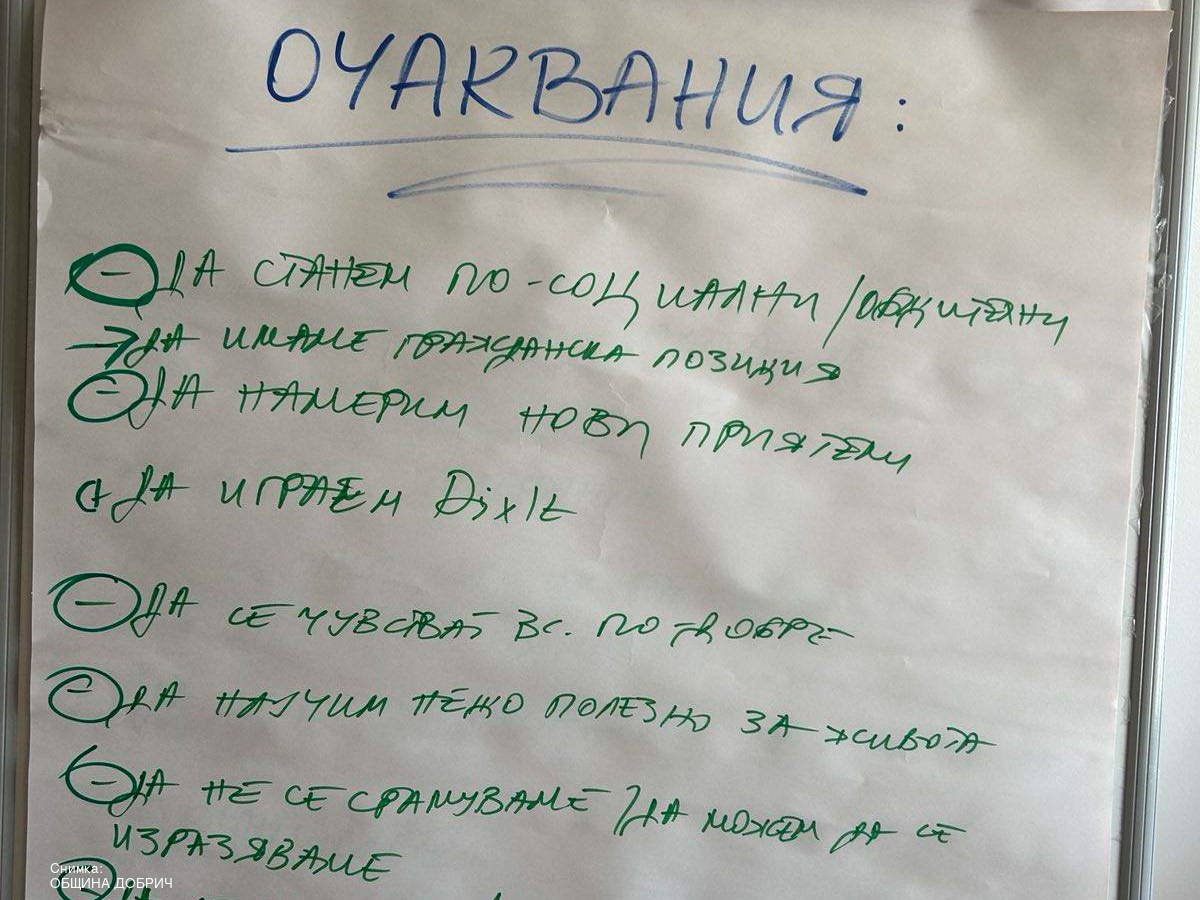 ОЧАКВАНИЯ:
- ДА СТАНЕМ ПО-СОЦИАЛНИ / ОБЩИТЕЛНИ
→ ДА ИМАМЕ ГРАЖДАНСКА ПОЗИЦИЯ
- ДА НАМЕРИМ НОВИ ПРИЯТЕЛИ
ДА ИГРАЕМ DixIt
- ДА СЕ ЧУВСТВАТ ВС. ПО-ДОБРЕ
- ДА НАУЧИМ НЕЩО ПОЛЕЗНО ЗА ЖИВОТА
- ДА НЕ СЕ СРАМУВАМЕ / ДА МОЖЕМ ДА СЕ
ИЗРАЗЯВАМЕ
Снимка:
ОБЩИНА ДОБРИЧ